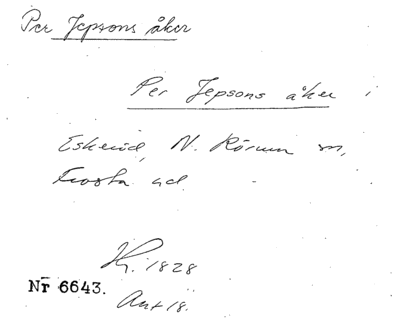 Per Jepsons åker
Per Jepsons åker i
Eskeröd, N. Rörum sn,
Frosta hd.
Hy. 1828
Nr 6643.
Akt 18.